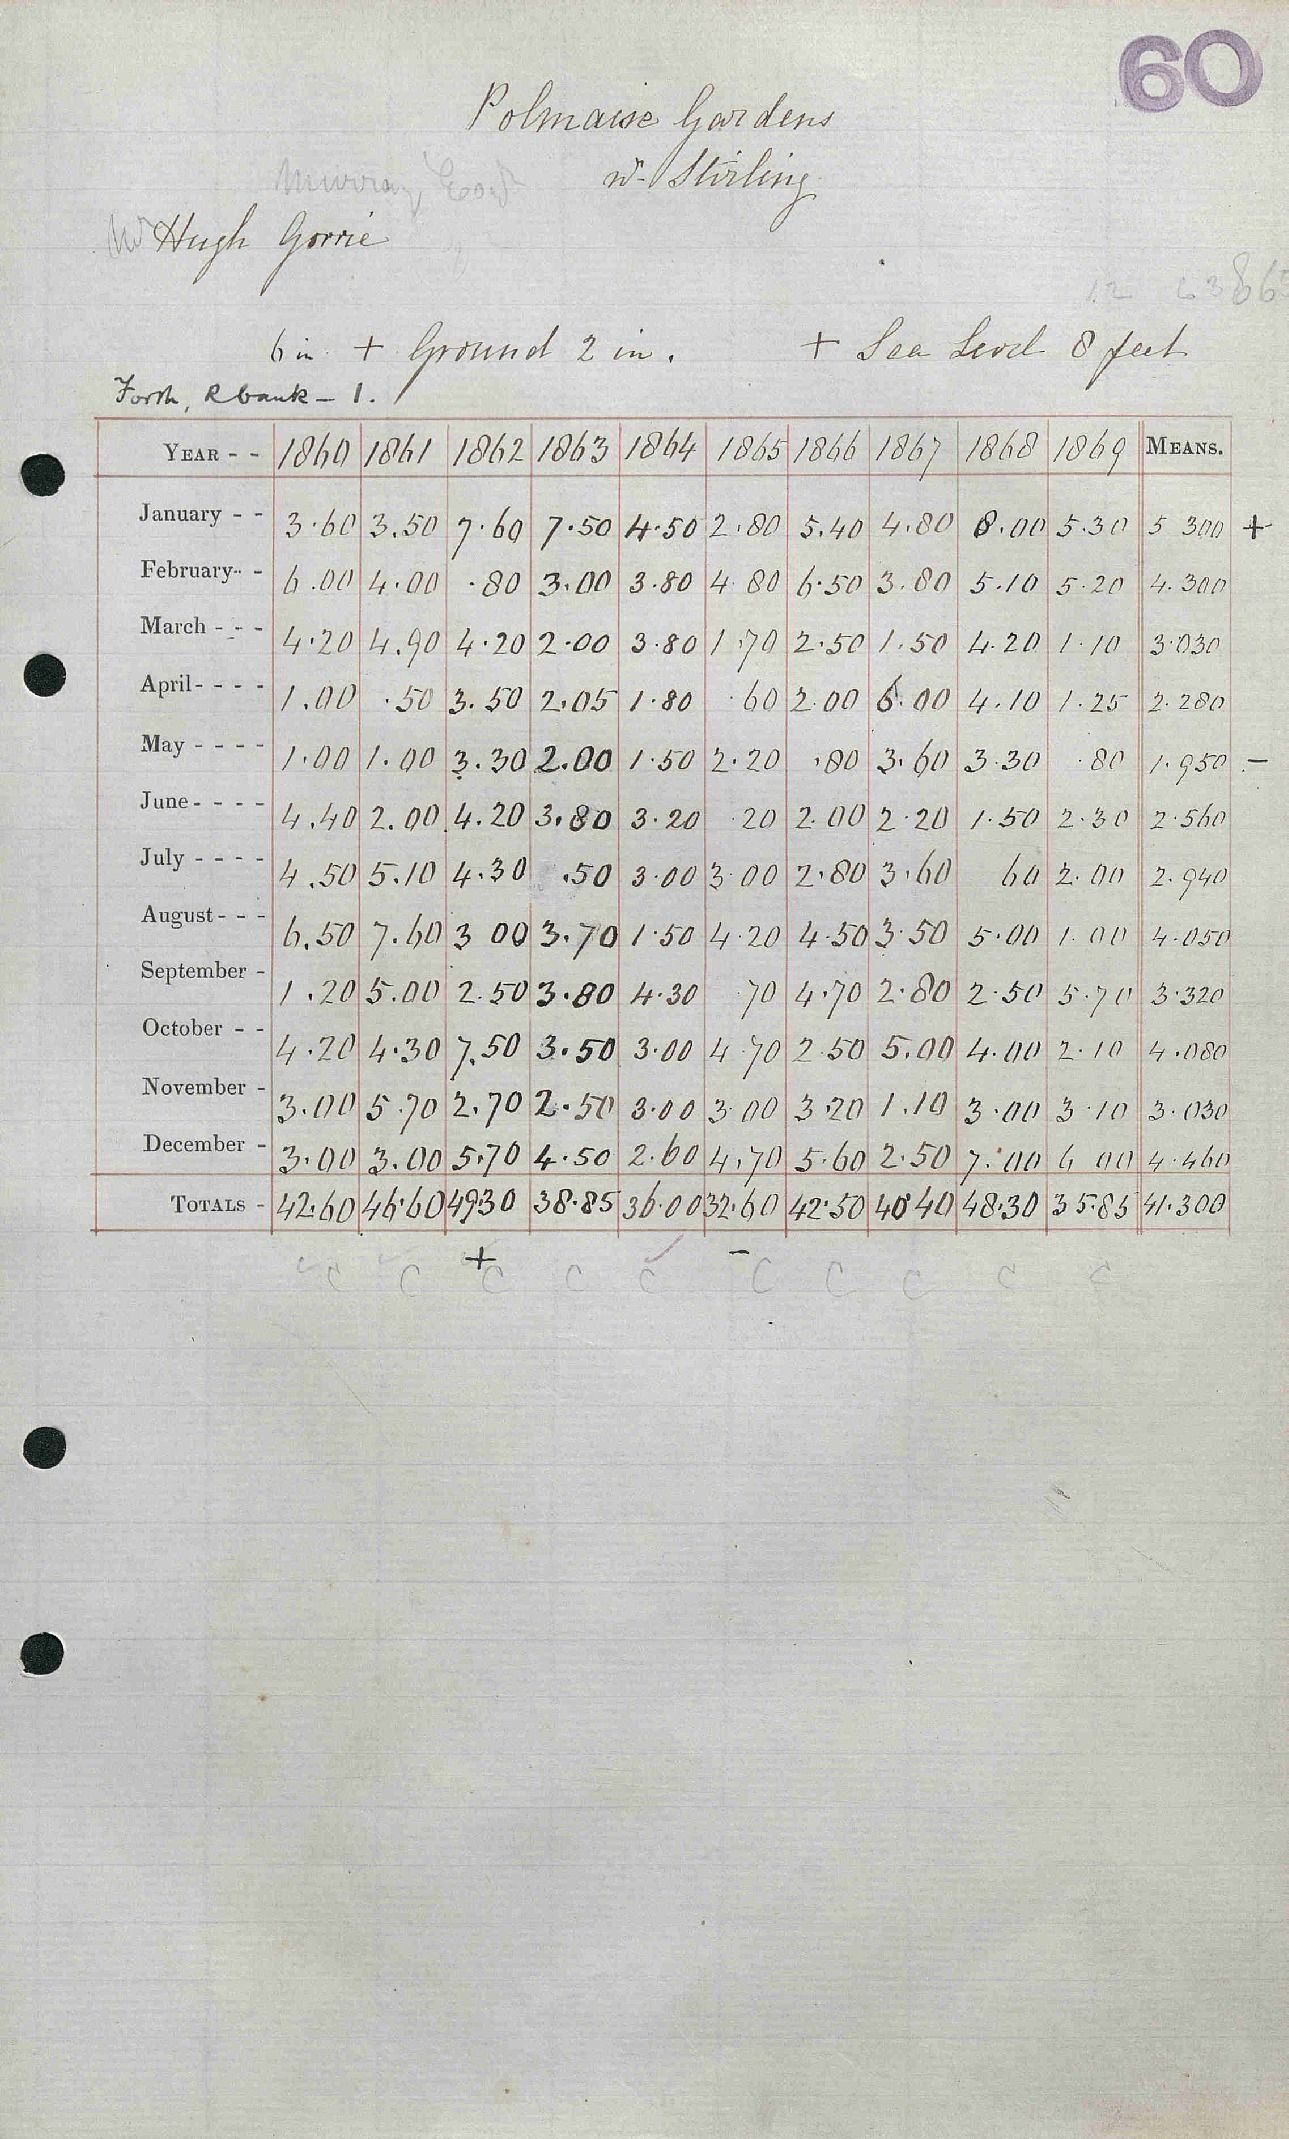 60
Polmaise Gardens
nr. Stirling
Murray
Mr Hugh Gorrie
12 63865
6 in. + Ground 2 in. + Sea Level 8 feet
Forth, R bank - 1.
YEAR - - 1860 1861 1862 1863 1864 1865 1866 1867 1868 1869 MEANS.
January - - 3.60 3.50 7.60 7.50 4.50 2.80 5.40 4.80 8.00 5.30 5 300 +
February - - 6.00 4.00 .80 3.00 3.80 4 80 6.50 3.80 5.10 5.20 4.300
March - - - 4.20 4.90 4.20 2.00 3.80 1.70 2.50 1.50 4.20 1.10 3.030
April - - - - 1.00 .50 3.50 2.05 1.80 .60 2.00 6.00 4.10 1.25 2.280
May - - - - 1.00 1.00 3.30 2.00 1.50 2.20 .80 3.60 3.30 .80 1.950 -
June - - - - 4.40 2.00 4.20 3.80 3.20 .20 2.00 2.20 1.50 2.30 2.560
July - - - - 4.50 5.10 4.30 .50 3.00 3.00 2.80 3.60 60 2.00 2.940
August - - - 6.50 7.60 3 00 3.70 1.50 4.20 4.50 3.50 5.00 1.00 4.050
September - 1.20 5.00 2.50 3.80 4.30 70 4.70 2.80 2.50 5.70 3.320
October - - 4.20 4.30 7.50 3.50 3.00 4.70 2.50 5.00 4.00 2.10 4.080
November - 3.00 5.70 2.70 2.50 3.00 3.00 3.20 1.10 3.00 3.10 3.030
December - 3.00 3.00 5.70 4.50 2.60 4.70 5.60 2.50 7.00 6 00 4.460
TOTALS - 42.60 46.60 4930 38.85 36.00 32.60 42.50 40.40 48.30 35.85 41.300
+ -
C C C C C C C C C C